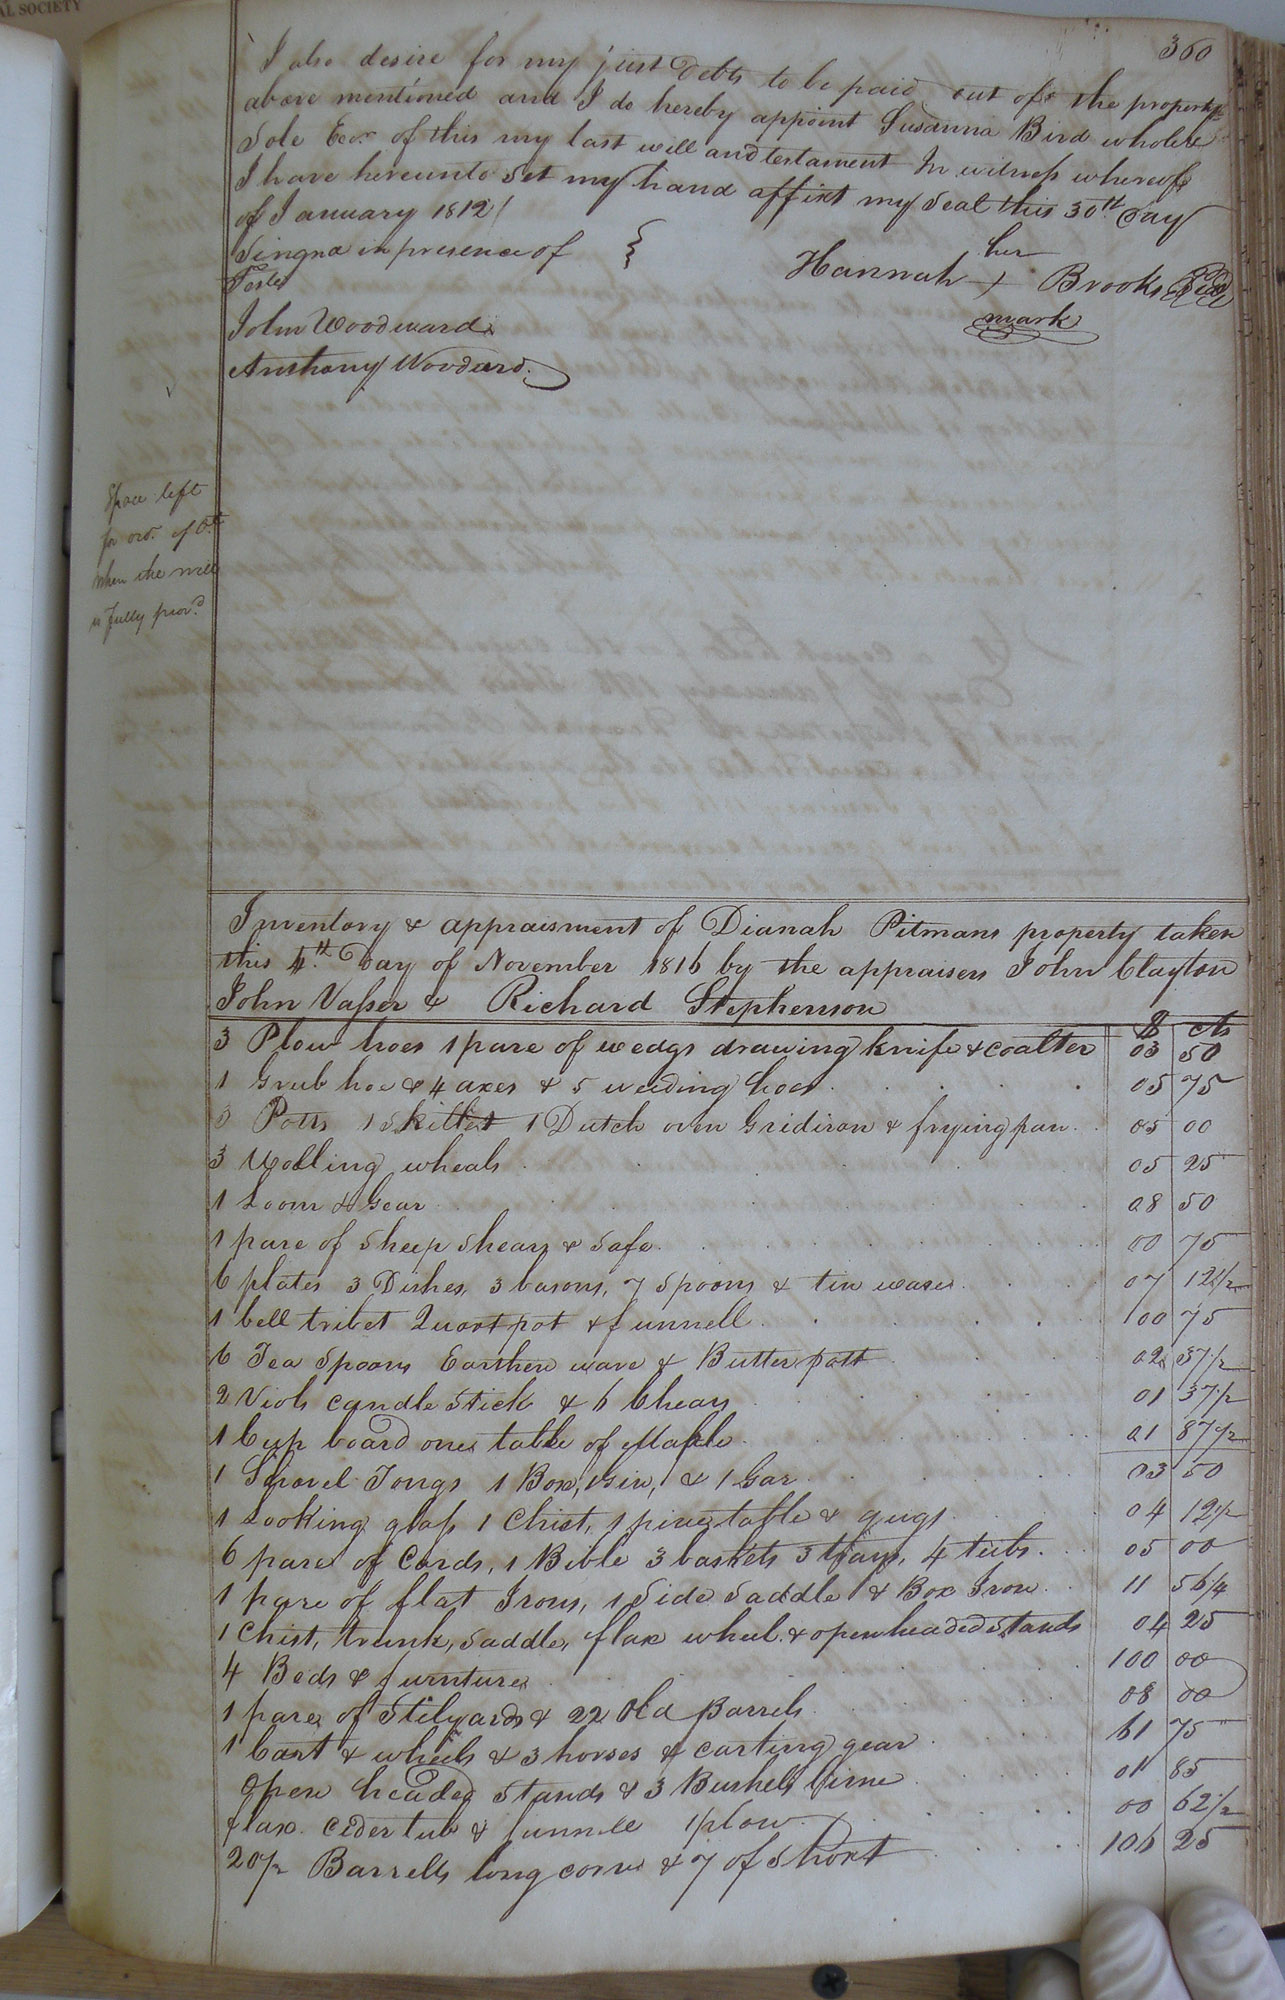 AL SOCIETY
360
I also desire for my just Debts to be paid out of the property
above mentioned and I do hereby appoint Susanna Bird whole &
Sole Exr. of this my last will and testament In witness whereof
I have hereunto Set my hand affixt my Seal this 30th Day
of January 1812
Singnd in presence of
Teste
her
Hannah + Brooks Seal
mark
John Woodward
Anthony Woodard
Space left
for ord. of Ct.
when the will
is fully prov.d
Inventory & appraisment of Dianah Pitmans property taken
this 4th. Day of November 1816 by the appraisers John Clayton
John Vasser & Richard Stephenson
$ cts
3 Plow hoes 1 pare of wedgs drawing knife & coalter 03 50
1 Grub hoe & 4 axes & 5 weeding hoes 05 75
3 Potts 1 Skillet 1 Dutch oven Gridiron & frying pan 05 00
3 Wolling wheals 05 25
1 Loom & Gear 08 50
1 pare of Sheep Shears & Safe 00 75
6 plates 3 Dishes, 3 basons, 7 Spoons & tin wares 07 12 1/2
1 bell trivet Quart pot & funnell 00 75
6 Tea Spoons Earthen ware & Butter pott 02 37 1/2
2 Viols candle Stick & 6 Chears 01 37 1/2
1 Cup board one table of Maple 01 87 1/2
1 Shovel Tongs 1 Box, 1 Gin, & 1 Gar 03 50
1 Looking glass 1 Chist, 1 pine table & gugs 04 12 1/2
6 pare of Cards, 1 Bible 3 baskets 3 trays, 4 tubs 05 00
1 pare of flat Irons, 1 Side Saddle & Box Iron 11 56 1/4
1 Chist, trunk, Saddle, flax wheel & open headed Stands 04 25
4 Beds & furniture 100 00
1 pare of Stilyards & 22 Old Barrels 08 00
1 Cart & wheels & 3 horses & carting gear 61 75
Open headed Stands & 3 Bushels 01 85
flax Cider tub & funnell 1 plow 00 62 1/2
20 1/2 Barrells long corn & 7 of Short 106 25